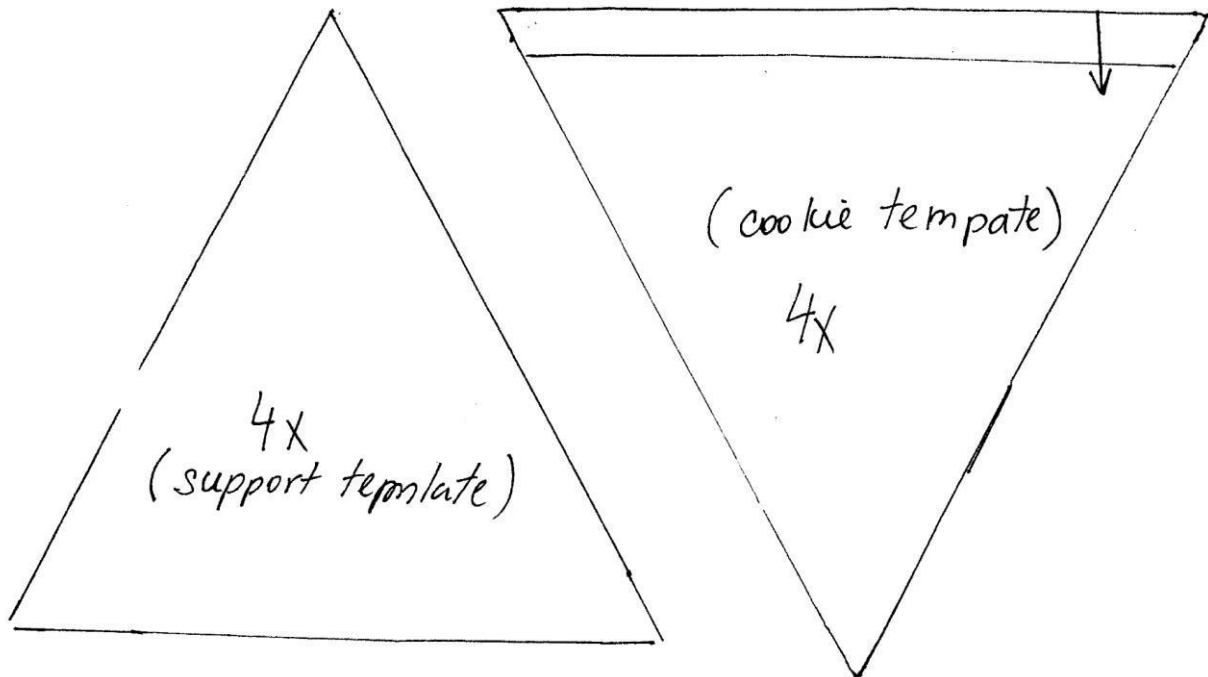 4x
(support tepmlate)
(cookie tempate)
4x